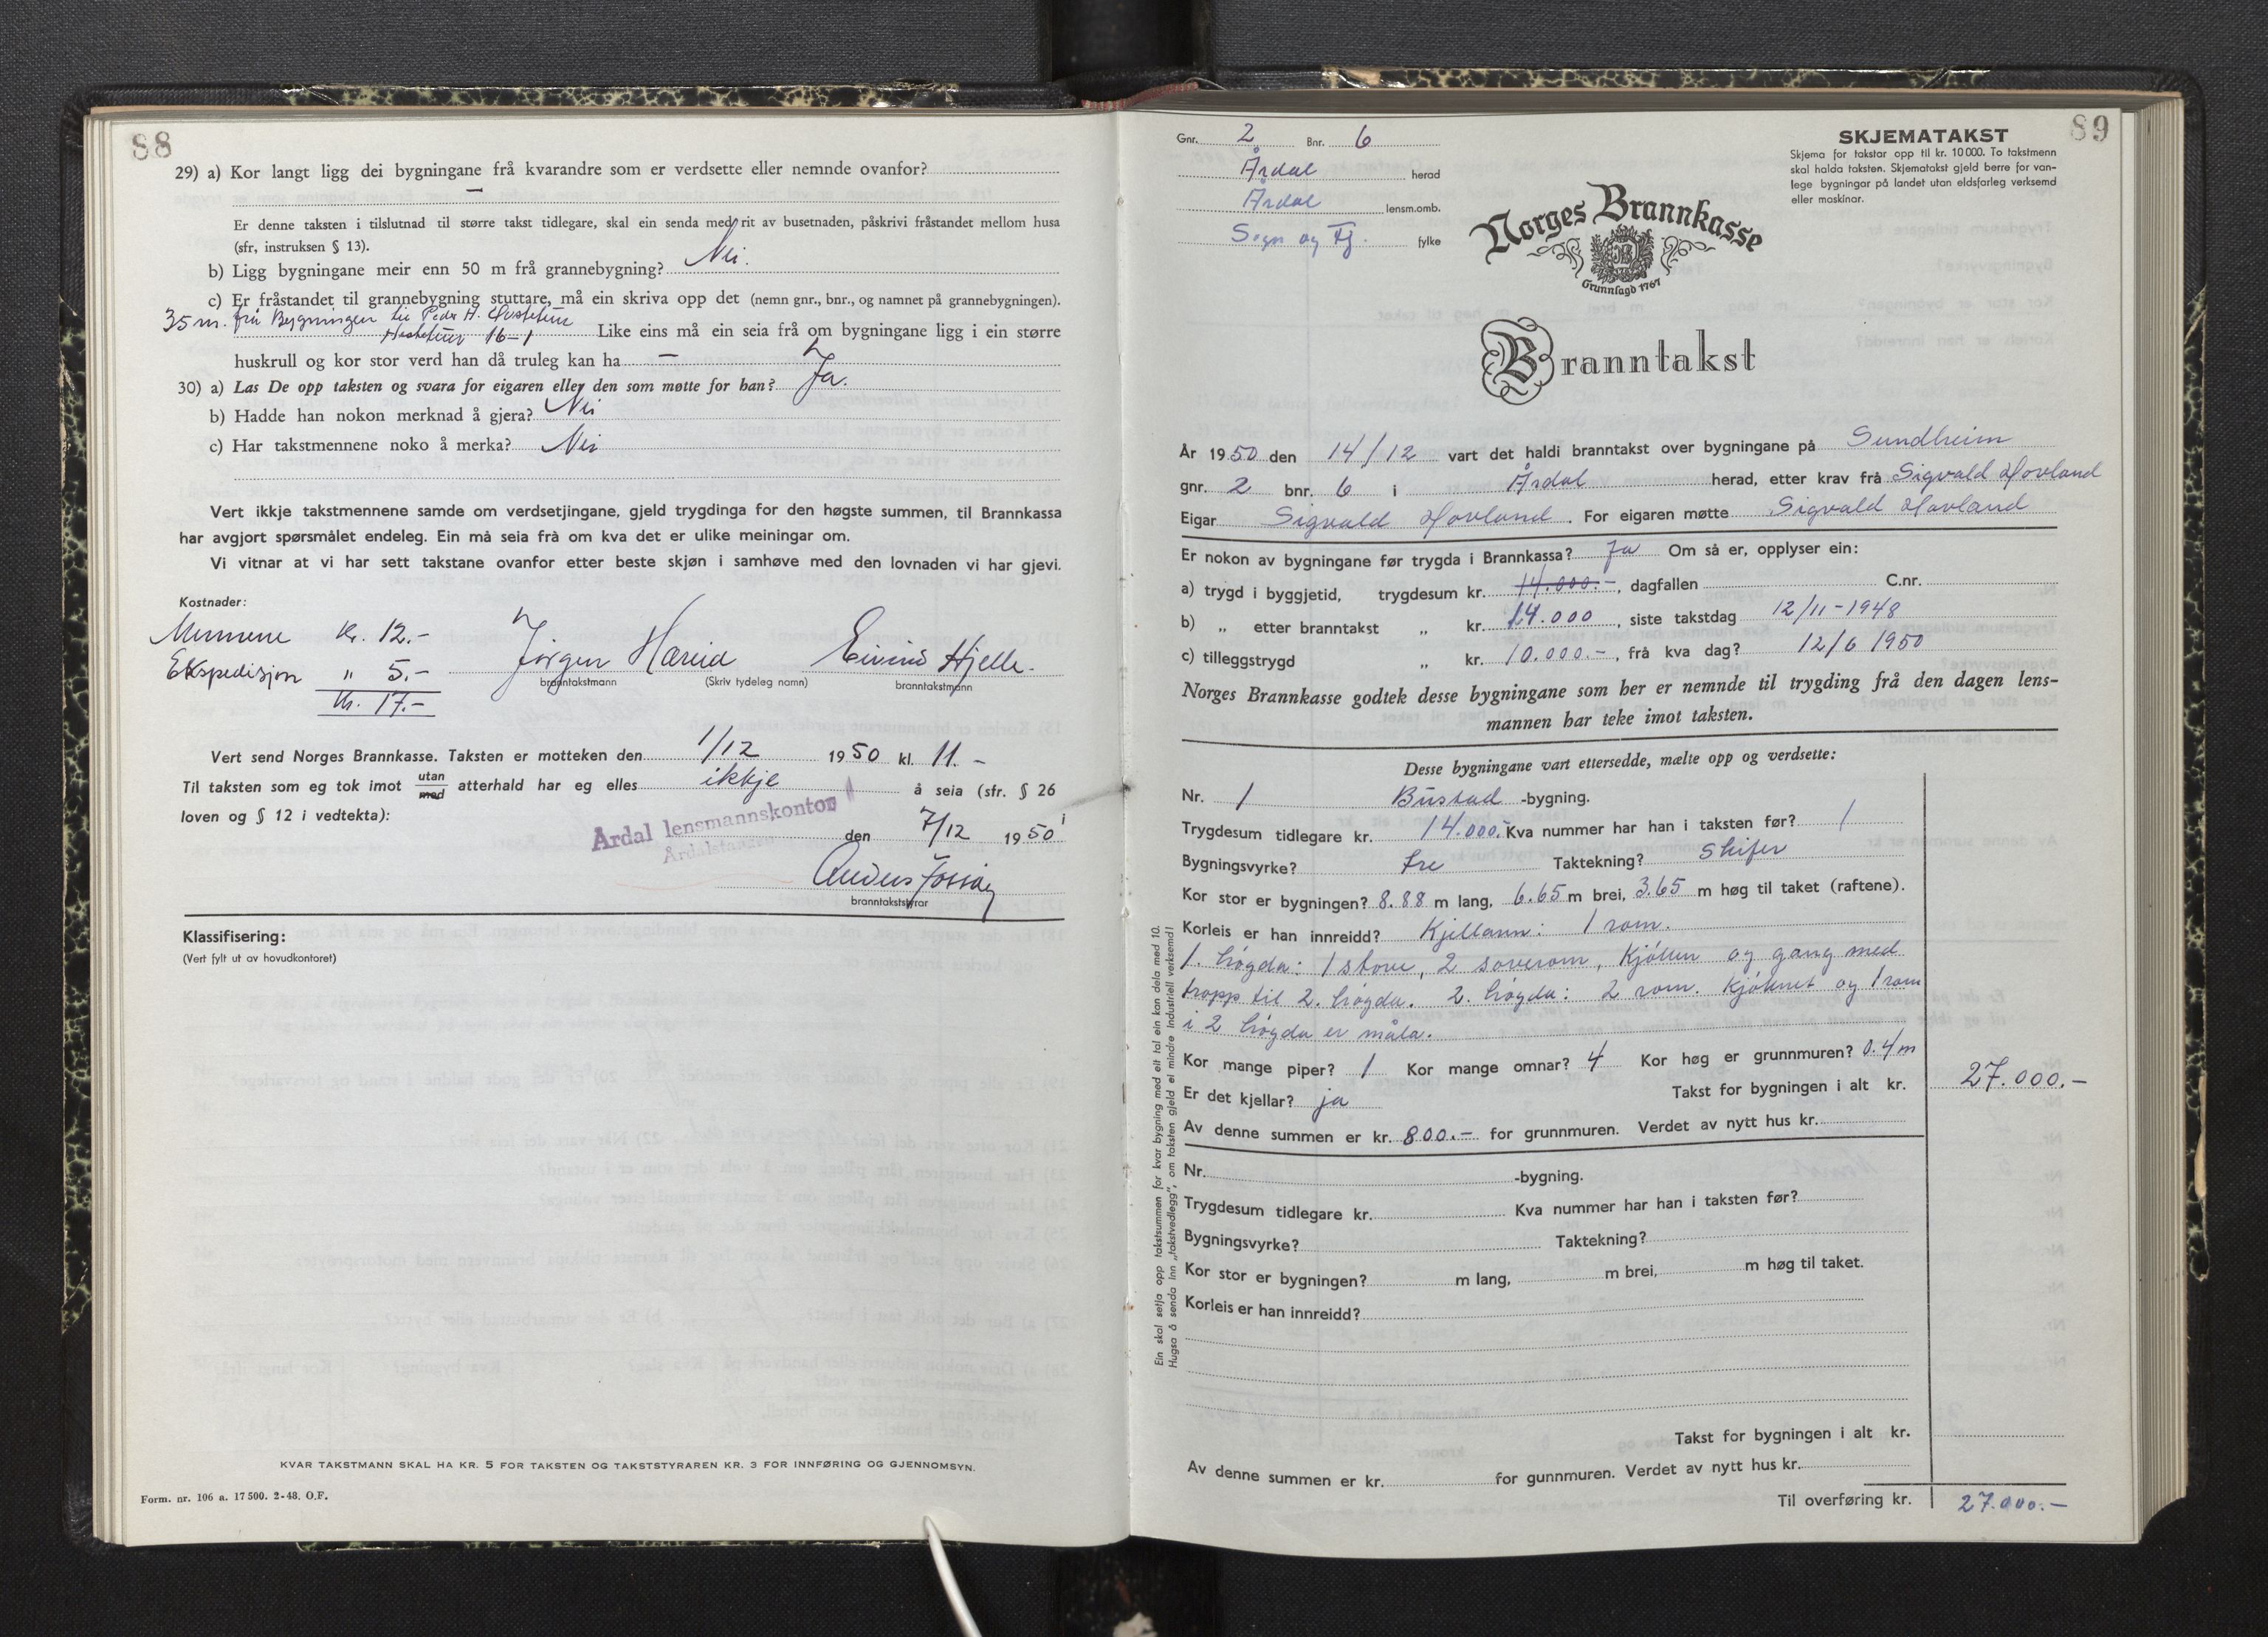 88
29) a) Kor langt ligg dei bygningane frå kvarandre som er verdsette eller nemnde ovanfor?
—
Er denne taksten i tilslutnad til større takst tidlegare, skal ein senda med rit av busetnaden, påskrivi fråstandet mellom husa
(sfr, instruksen § 13).
b) Ligg bygningane meir enn 50 m frå grannebygning? Nei.
c) Er fråstandet til grannebygning stuttare, må ein skriva opp det (nemn gnr., bnr., og namnet på grannebygningen).
35 m. frå Bygningen til Peder H.
16-1 Like eins må ein seia frå om bygningane ligg i ein større
huskrull og kor stor verd han då truleg kan ha —
30) a) Las De opp taksten og svara for eigaren eller den som møtte for han? Ja.
b) Hadde han nokon merknad å gjera? Nei
c) Har takstmennene noko å merka? Nei
Vert ikkje takstmennene samde om verdsetjingane, gjeld trygdinga for den høgste summen, til Brannkassa
har avgjort spørsmålet endeleg. Ein må seia frå om kva det er ulike meiningar om.
Vi vitnar at vi har sett takstane ovanfor etter beste skjøn i samhøve med den lovnaden vi har gjevi.
Kostnader:
Mennene kr. 12.-
Ekspedisjon " 5.-
Kr. 17.-
Jørgen Hæreid Eivind Hjelle.
branntakstmann (Skriv tydeleg namn) branntakstmann
Vert send Norges Brannkasse. Taksten er motteken den 1/12 1950 kl. 11.-
Til taksten som eg tok imot utan/med atterhald har eg elles ikkje å seia (sfr. § 26 i
loven og § 12 i vedtekta):
Årdal lensmannskontor
Årdalstangen
den 7/12 1950
Anders
branntakststyrar
Klassifisering:
(Vert fylt ut av hovudkontoret)
KVAR TAKSTMANN SKAL HA KR. 5 FOR TAKSTEN OG TAKSTSTYRAREN KR. 3 FOR INNFØRING OG GJENNOMSYN.
Form. nr. 106 a. 17 500. 2-48. O.F.
89
Gnr. 2 Bnr. 6
Årdal herad
Årdal lensm.omb.
Sogn og Fj. fylke
SKJEMATAKST
Skjema for takstar opp til kr. 10 000. To takstmenn
skal halda taksten. Skjematakst gjeld berre for van-
lege bygningar på landet utan eldsfarleg verksemd
eller maskinar.
Norges Brannkasse
Grunnlagd 1767
Branntakst
År 1950 den 14/12 vart det haldi branntakst over bygningane på Sundheim
gnr. 2 bnr. 6 i Årdal herad, etter krav frå Sigvald Hovland
Eigar Sigvald Hovland. For eigaren møtte Sigvald Hovland
Er nokon av bygningane før trygda i Brannkassa? Ja Om så er, opplyser ein:
a) trygd i byggjetid, trygdesum kr. 14.000.-, dagfallen C.nr.
b) „ etter branntakst „ kr. 14.000, siste takstdag 12/11-1948
c) tilleggstrygd „ kr. 10.000.-, frå kva dag? 12/6 1950
Norges Brannkasse godtek desse bygningane som her er nemnde til trygding frå den dagen lens-
mannen har teke imot taksten.
Desse bygningane vart ettersedde, mælte opp og verdsette:
Nr. 1 Bustad -bygning.
Trygdesum tidlegare kr. 14.000.- Kva nummer har han i taksten før? 1
Bygningsvyrke? tre Taktekning? Skifer
Kor stor er bygningen? 8.88 m lang, 6.65 m brei, 3.65 m høg til taket (raftene).
Korleis er han innreidd? Kjellaren: 1 rom.
1. høgda: 1 stove, 2 soverom, kjøken og gang med
tropp til 2. høgda. 2. høgda: 2 rom. Kjøknet og 1 rom
i 2 høgda er måla.
Kor mange piper? 1 Kor mange omnar? 4 Kor høg er grunnmuren? 0.4 m
Er det kjellar? ja Takst for bygningen i alt kr. 27.000.-
Av denne summen er kr. 800.- for grunnmuren. Verdet av nytt hus kr.
Nr. -bygning.
Trygdesum tidlegare kr. Kva nummer har han i taksten før?
Bygningsvyrke? Taktekning?
Kor stor er bygningen? m lang, m brei, m høg til taket.
Korleis er han innreidd?
Takst for bygningen i alt kr.
Av denne summen er kr. for gunnmuren. Verdet av nytt hus kr.
Til overføring kr. 27.000.-
Ein skal setja opp takstsummen for kvar bygning med eit tal ein kan dela med 10.
Hugsa å senda inn „takstvedlegg”, om taksten gjeld ei mindre industriell verksemd!